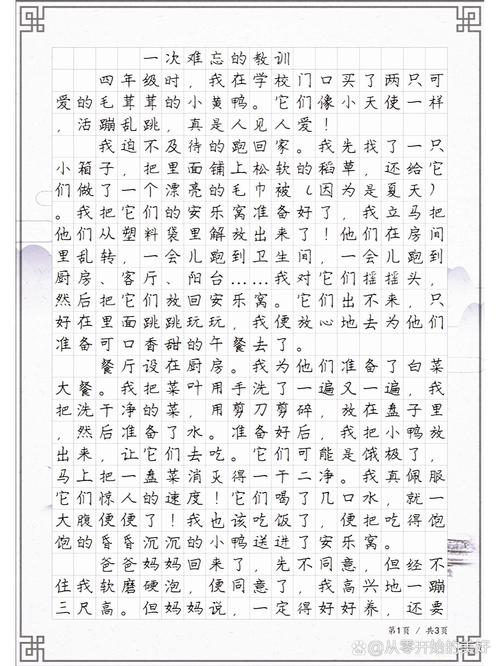 一次难忘的教训
四年级时，我在学校门口买了两只可
爱的毛茸茸的小黄鸭。它们像小天使一样
，活蹦乱跳，真是人见人爱！
我迫不及待的跑回家。我先找了一只
小箱子，把里面铺上松软的稻草，还给它
们做了一个漂亮的毛巾被（因为是夏天）
。我把它们的安乐窝准备好了，我立马把
他们从塑料袋里解放出来了！他们在房间
里乱转，一会儿跑到卫生间，一会儿跑到
厨房、客厅、阳台……我对它们摇摇头，
然后把它们放回安乐窝。它们出不来，只
好在里面跳跳玩玩，我便放心地去为他们
准备可口香甜的午餐去了。
餐厅设在厨房。我为他们准备了白菜
大餐。我把菜叶用手洗了一遍又一遍，我
把洗干净的菜，用剪刀剪碎，放在盘子里
，然后准备了水。准备好后，我把小鸭放
出来，让它们去吃。它们可能是饿极了，
马上把一盘菜消灭得一干二净。我真佩服
它们惊人的速度！它们喝了几口水，就一
大腹便便了！我也该吃饭了，便把吃得饱
饱的昏昏沉沉的小鸭送进了安乐窝。
爸爸妈妈回来了，先不同意，但经不
住我软磨硬泡，便同意了，我高兴地一蹦
三尺高。但妈妈说，一定得好好养，还要
第1页 / 共3页
@从零开始的美好